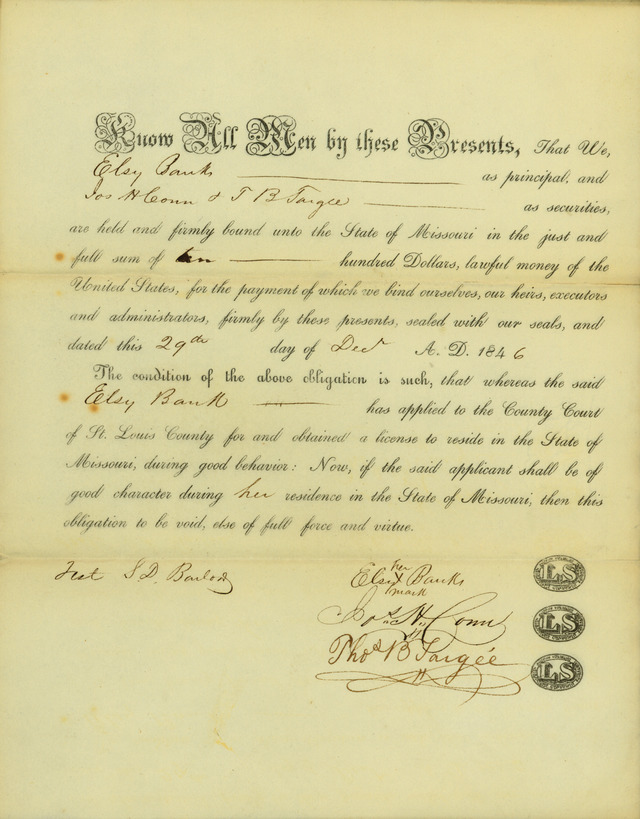 Know All Men by these Presents, That We,
Elsy Banks as principal, and
Jos H Conn & T B Targee as securities,
are held and firmly bound unto the State of Missouri in the just and
full sum of hundred Dollars, lawful money of the
United States, for the payment of which we bind ourselves, our heirs, executors
and administrators, firmly by these presents, sealed with our seals, and
dated this 29th day of Decr A. D. 1846
The condition of the above obligation is such, that whereas the said
Elsy Bank has applied to the County Court
of St. Louis County for and obtained a license to reside in the State of
Missouri, during good behavior: Now, if the said applicant shall be of
good character during her residence in the State of Missouri, then this
obligation to be void, else of full force and virtue.
Test S. D. Barlow
her
Elsy X Banks
mark
LS
Jos. H. Conn
LS
Thos B Targée
LS